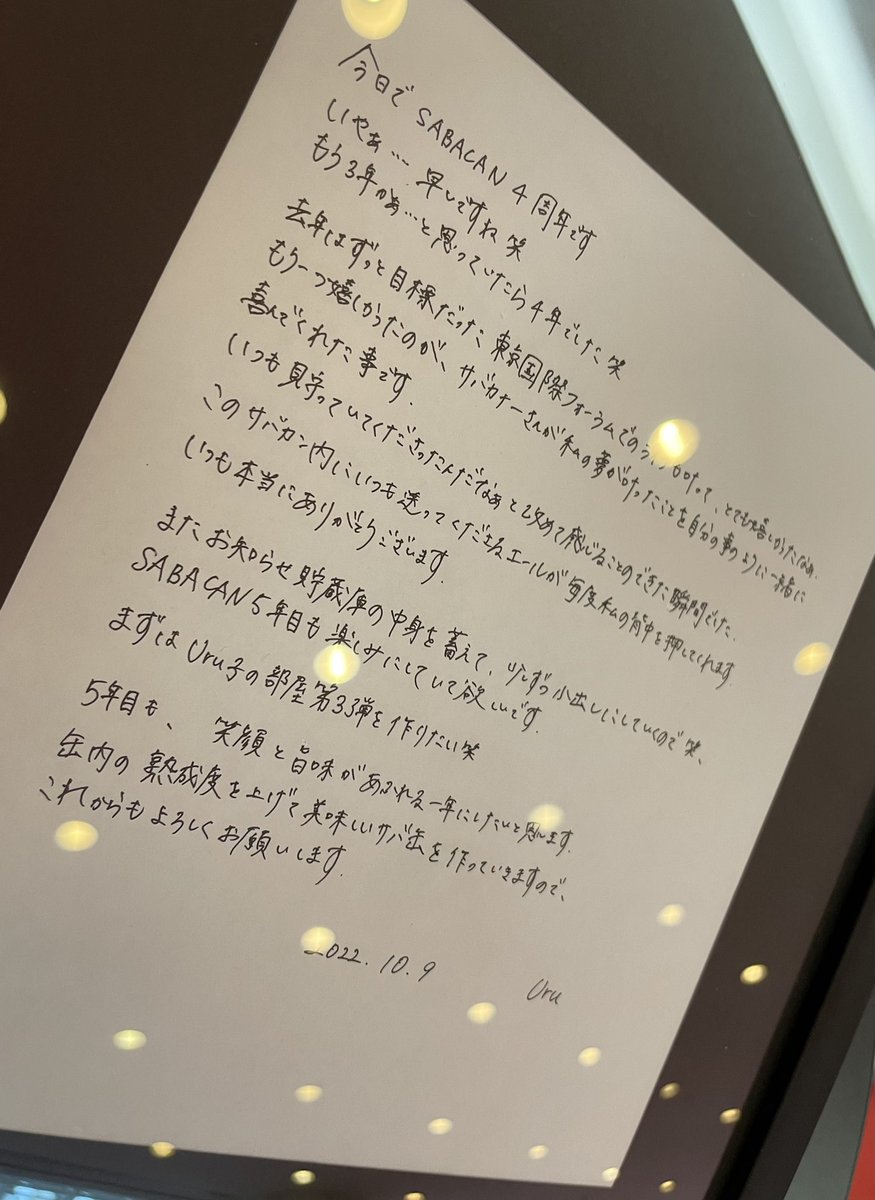 今日で SABACAN 4周年です
いやぁ… 早いですね 笑
もう3年かぁ…と思っていたら4年でした 笑
去年はずっと目標だった 東京国際フォーラムでの とても嬉しかったなぁ.
もう一つ嬉しかったのが、サバカナーさんが私の夢が叶ったことを自分の事のように一緒に
喜んでくれた事です.
いつも見守っていてくださったんだなぁと改めて感じることのできた瞬間でした.
このサバカン内にいつも送ってくださるエールが毎度私の背中を押してくれます.
いつも本当にありがとうございます.
またお知らせ貯蔵庫の中身を蓄えて、少しずつ小出しにしていくので笑、
SABACAN 5年目も楽しみにしていて欲しいです.
まずは Uru子の部屋第33弾を作りたい笑
5年目も、笑顔と旨味があふれる一年にしたいと思います.
缶内の熟成度を上げて美味しいサバ缶を作っていきますので、
これからもよろしくお願いします.
2022.10.9
Uru